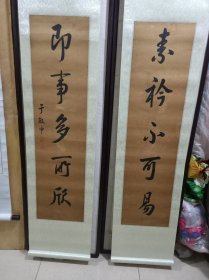 素衿不可易
即事多所欣
于敏中